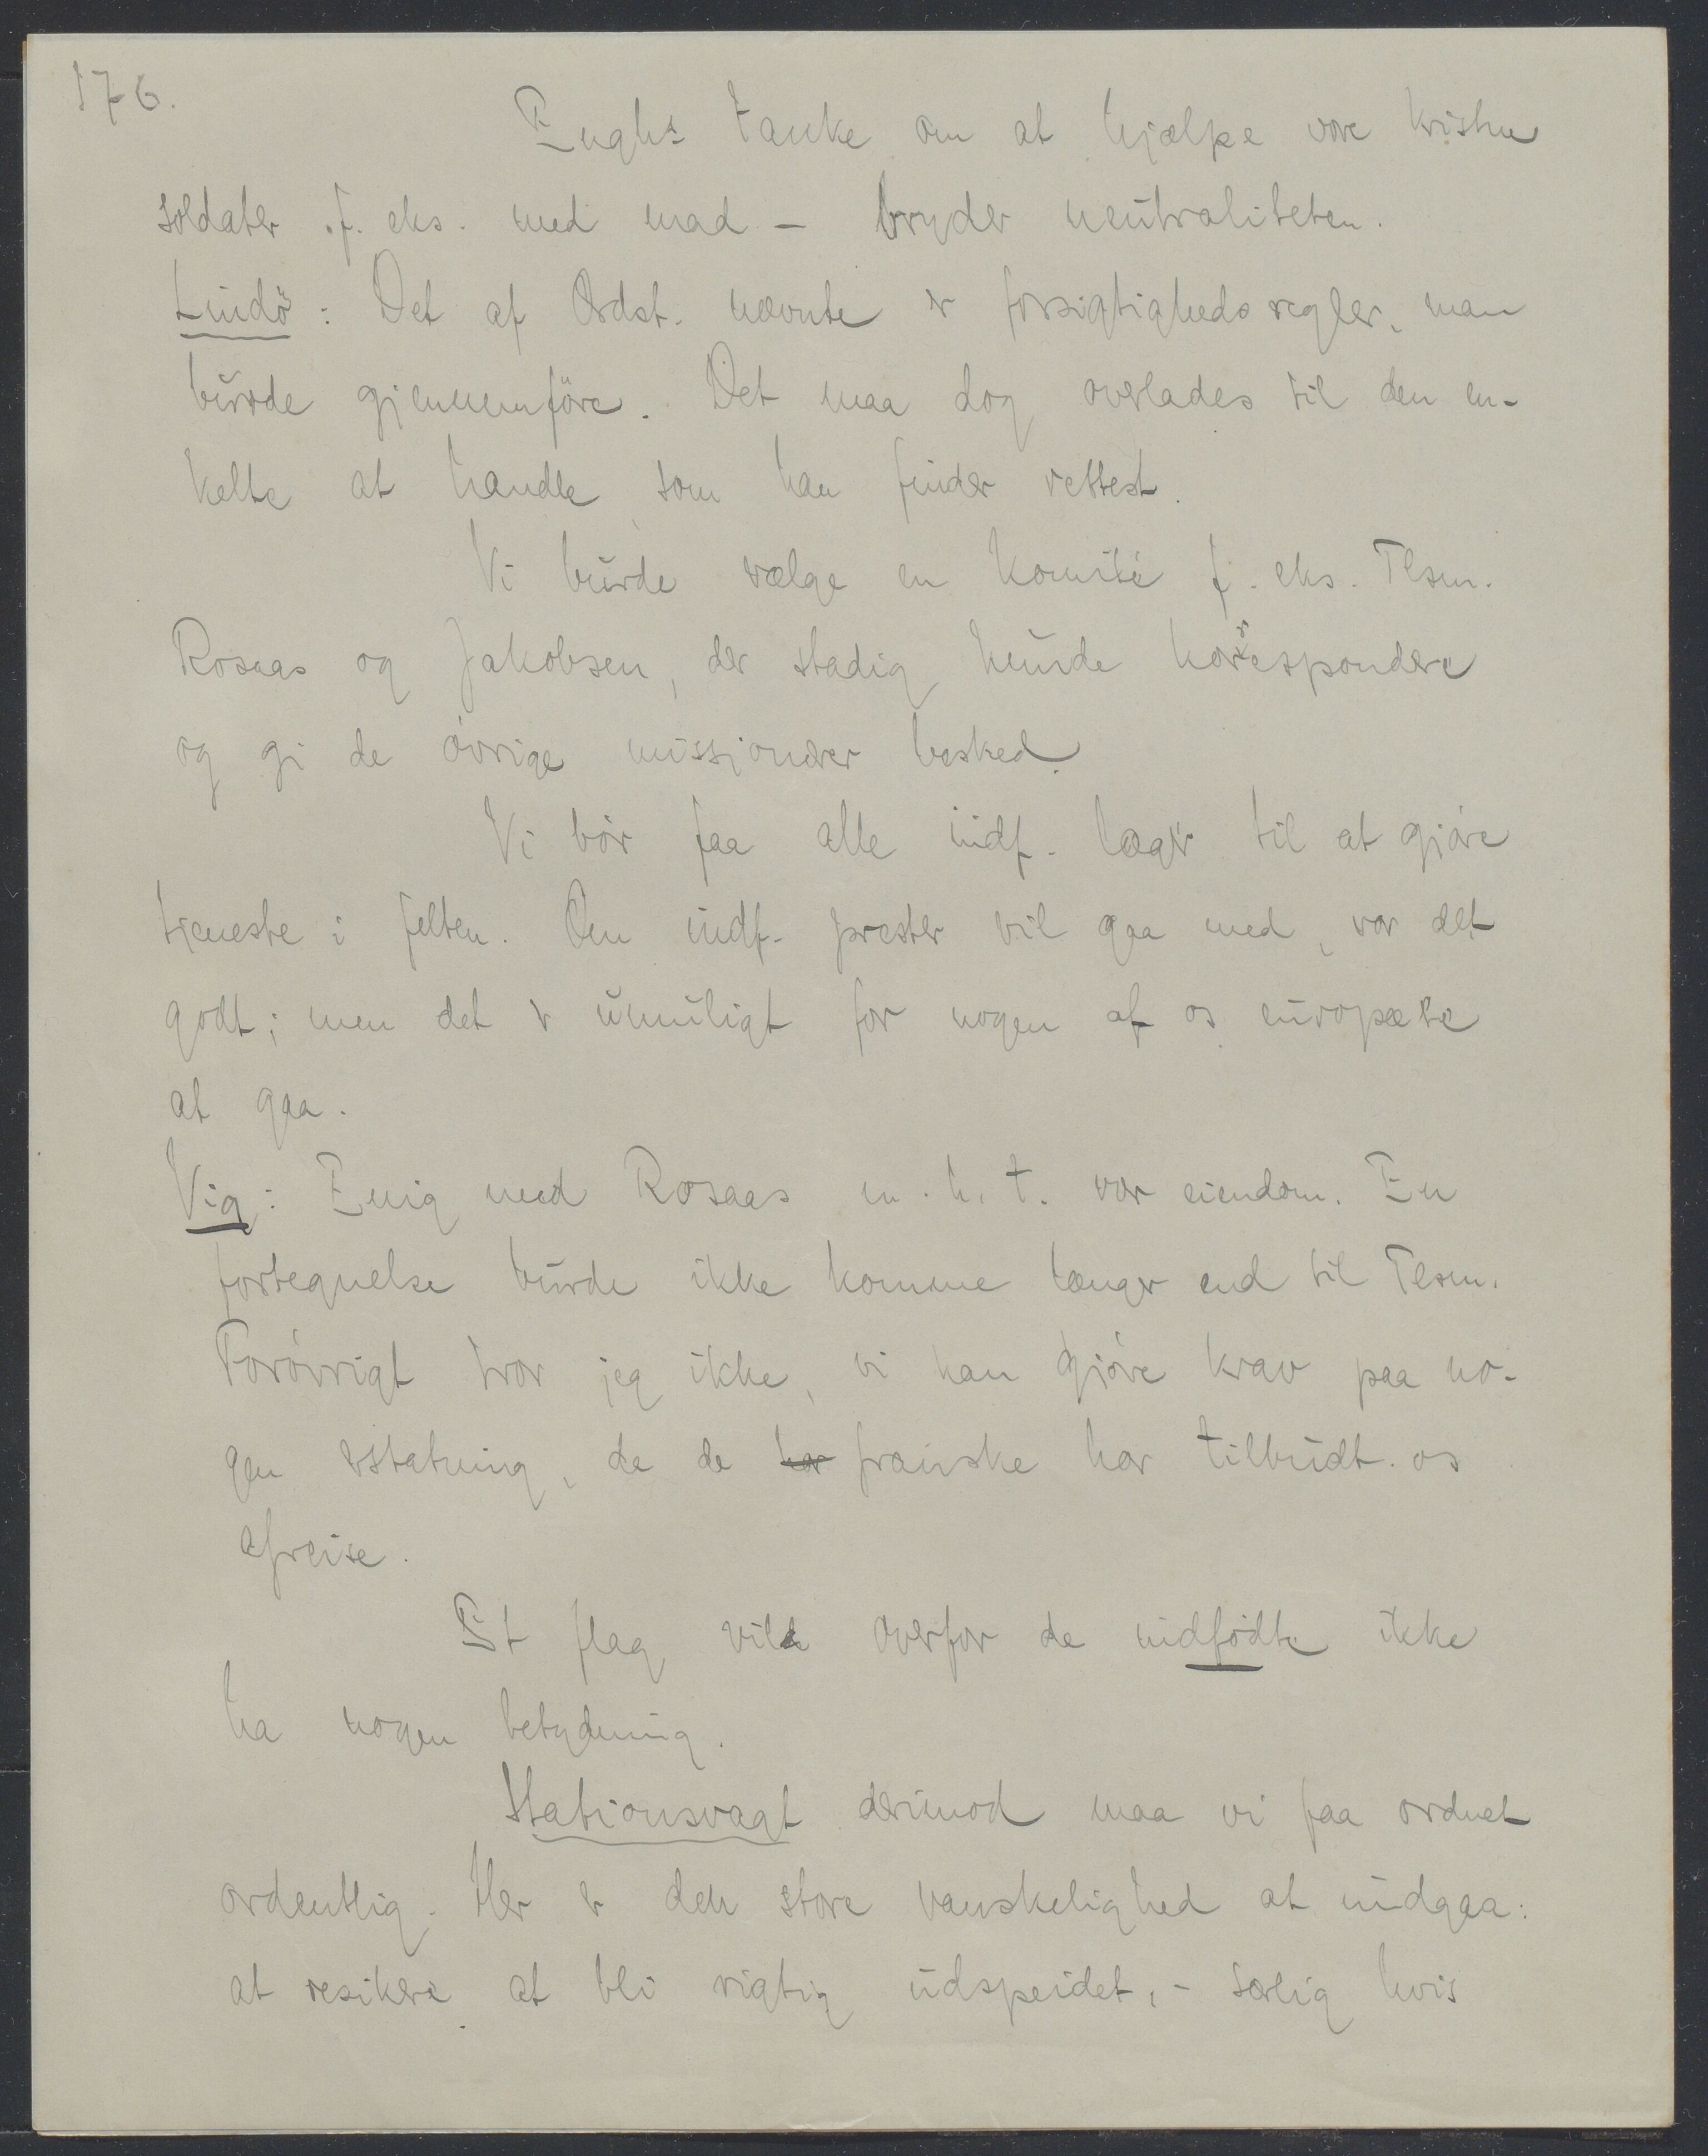 176.
Enghs tanke om at hjælpe vore kristne
soldater f. eks. med mad – bryder neutraliteten.
Lindö: Det af Ordst. nævnte er forsigtigheds regler, man
burde gjennemföre. Det maa dog overlades til den en-
kelte at handle som han finder rettest.
Vi burde vælge en komité f. eks. Tlsm.
Rosaas og Jakobsen, der stadig kunde korrespondere
og gi de övrige missjonærer besked.
Vi bör faa alle indf. læger til at gjöre
tjeneste i felten. Om indf. prester vil gaa med, var det
godt; men det er umuligt for nogen af os europæere
at gaa.
Vig: Enig med Rosaas m. h. t. vor eiendom. En
fortegnelse burde ikke komme længer end til Tlsm.
Forövrigt tror jeg ikke, vi kan gjöre krav paa no-
gen erstatning, da de har franske har tilbudt os
afreise.
Et flag vilde overfor de indfödte ikke
ha nogen betydning.
Stationsvagt derimod maa vi faa ordnet
ordentlig. Her er den store vanskelighed at undgaa:
at resikere at bli rigtig udspeidet, – særlig hvis